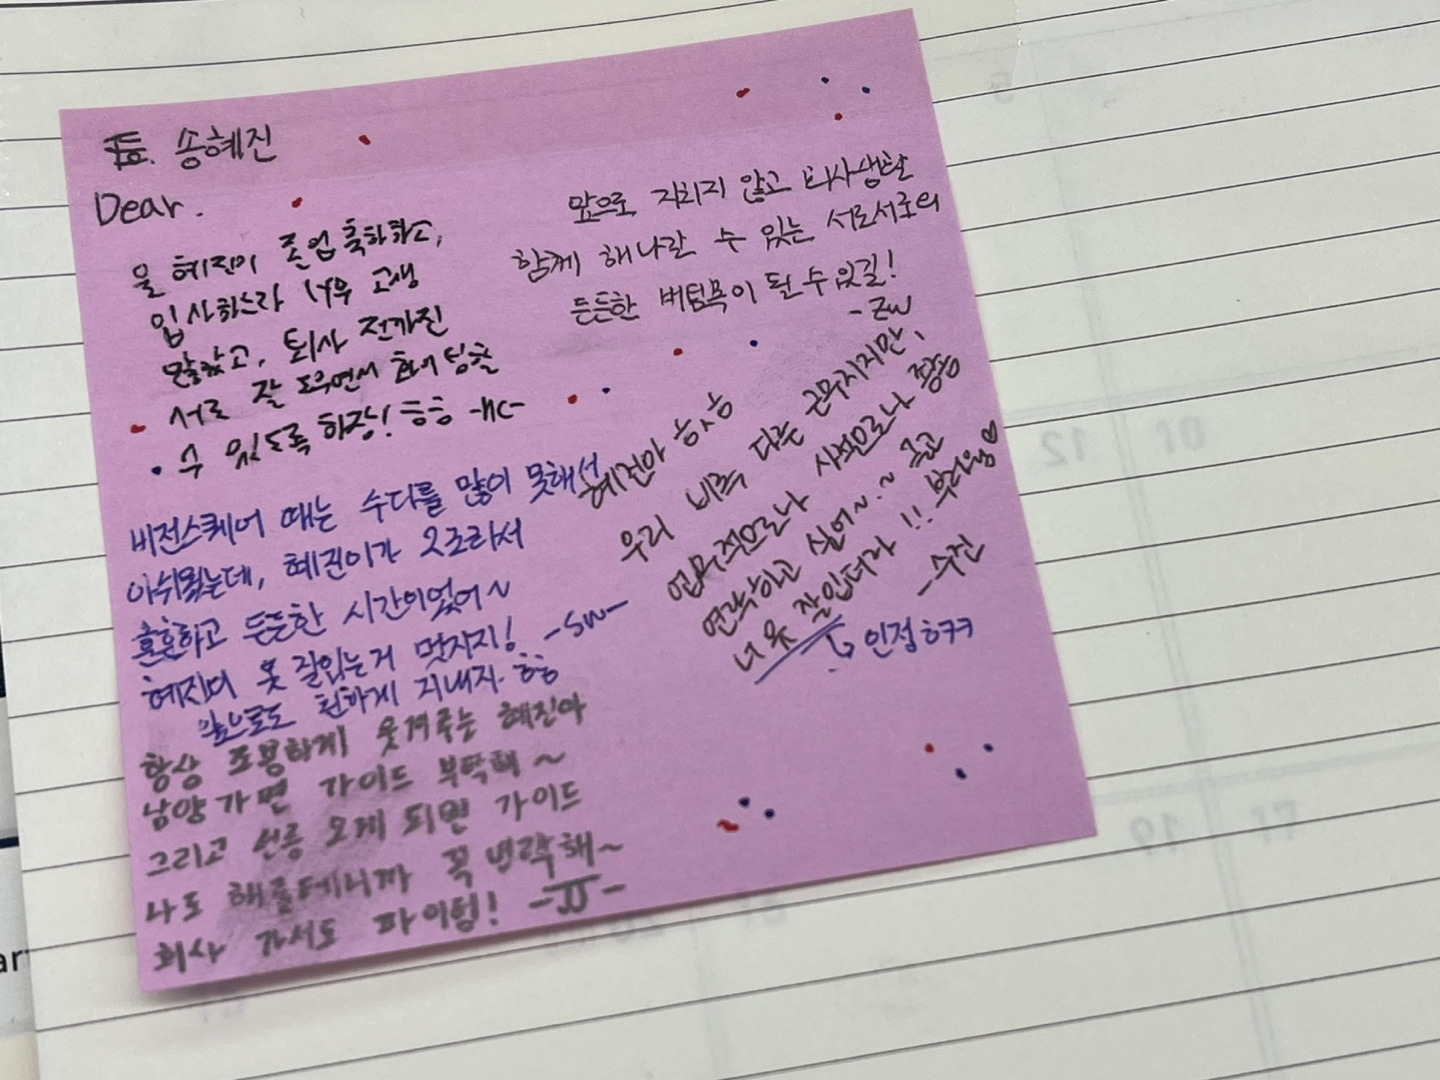 To. 송혜진
Dear.
울 혜진이 졸업 축하하고,
입사하느라 너무 고생
많았고, 회사 전까진
서로 잘 도우면서 성장할
수 있도록 하장! ㅎㅎ -HC-
앞으로 지치지 않고 회사생활
함께 해나갈 수 있는 서로서로의
든든한 버팀목이 될 수 있길!
- ZW
비전스퀘어 때는 수다를 많이 못해서
아쉬웠는데, 혜진이가 2조라서
훈훈하고 든든한 시간이었어~
혜진이 옷 잘입는거 멋지지! -SW-
앞으로도 친하게 지내자 ㅎㅎ
혜진아 ㅎㅅㅎ
우리 비록 다른 근무지지만,
업무적으로나 사적으로나 종종
연락하고 싶어~.~ 글고
너 옷 잘입더라 !! 부러움♡
- 수진
↳ 인정ㅎㅋㅋ
항상 조용하게 웃겨주는 혜진아
남양 가면 가이드 부탁해 ~
그리고 선릉 오게 되면 가이드
나도 해줄테니까 꼭 연락해~
회사 가서도 파이팅! -JJ-
5
12
10
19
17
ar